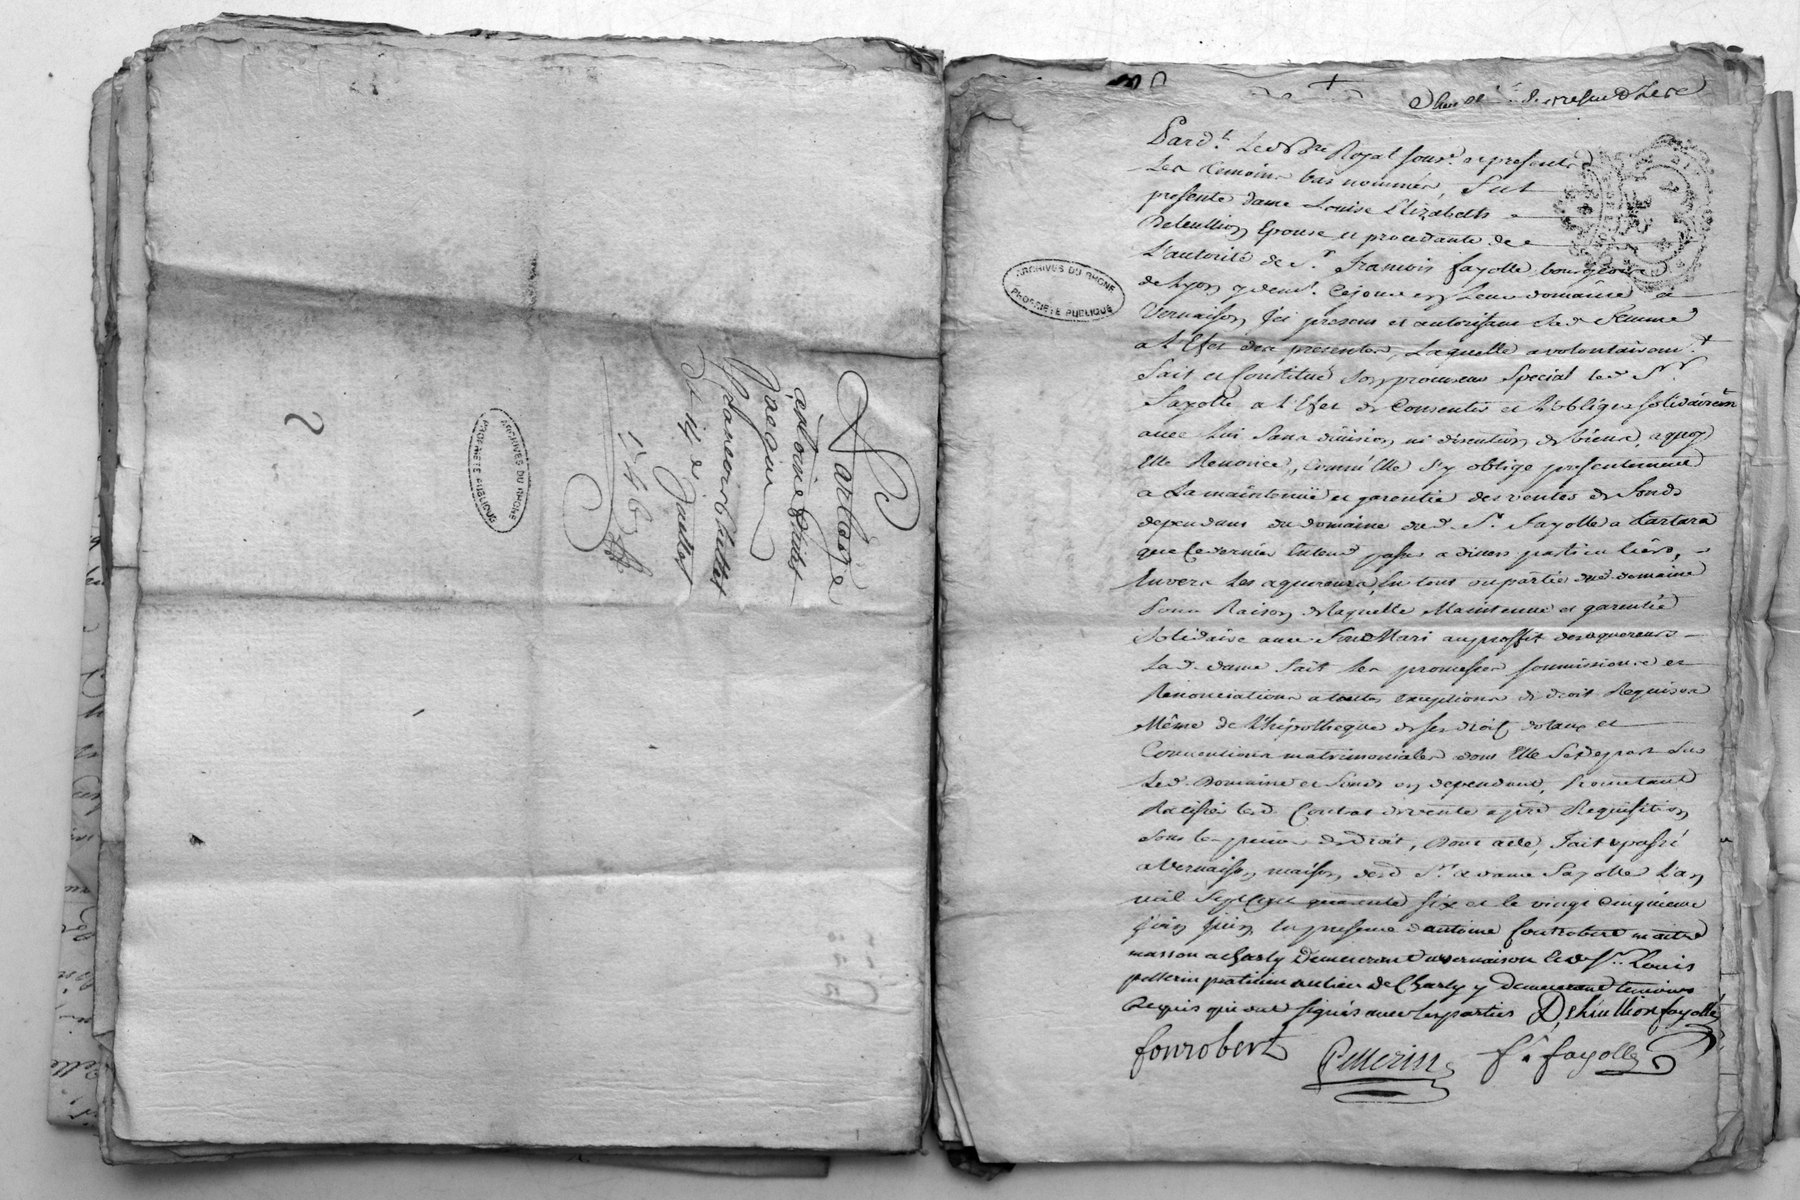 Partage
antoine
Jacquin
1746
2
ARCHIVES DU RHONE
PROPRIÉTÉ PUBLIQUE
Pard.t Le Nore Royal sous.é et presents
Les temoins bas nommés, fut
presente dame Louise Elizabeth
Deleullion Epouse et procedante de
L'autorité de S.r François fayolle bourgeois
de Lyon y dem.t cejourd en leur domaine a
Vernaison, ici present et autorisant lad. femme
a l'Efet des presentes, Laquelle a volontairem.t
fait et Constitué son procureur Special led. Sr.
fayolle a l'Efet de Consentir et s'obliger solidairem.
avec lui sans division ni discution de biens, a quoy
Elle Renonce, comm'Elle s'y oblige presentement
a La maintenüe et garentie des ventes de fonds
dependans du domaine dud. Sr. fayolle a tartara
que ce dernier entend passer a divers particuliers,
Envers les aquereurs, En tout ou partie dud. domaine
pour Raison de laquelle Maintenue et garentie
Solidaire avec sond. Mari au proffit des aquereurs
lad. dame fait les promesses soumissions et
Renonciations a toutes exceptions de droit Requises
Même de l'hipotheque de ses droits dotaux et
Conventions matrimoniales dont Elle se depart sur
led. Domaine et fonds en dependant, promettant
Ratifier led. Contrat de vente a prè Requisition
sous les peines de droit, Dont acte, fait & passé
a Vernaison, maison desd. Sr. & dame fayolle L'an
mil Sept Cent quarante six et le vingt cinquieme
Juin, En presence d'antoine fourobert maitre
masson a Charly demeurant a vernaison et de Sr. Louis
pellerin praticien au lieu de Charly y demeurant temoins
Requis qui ont signés avec les parties Deleullion fayolle
fourobert Pellerin f. fayolle
ARCHIVES DU RHONE
PROPRIÉTÉ PUBLIQUE